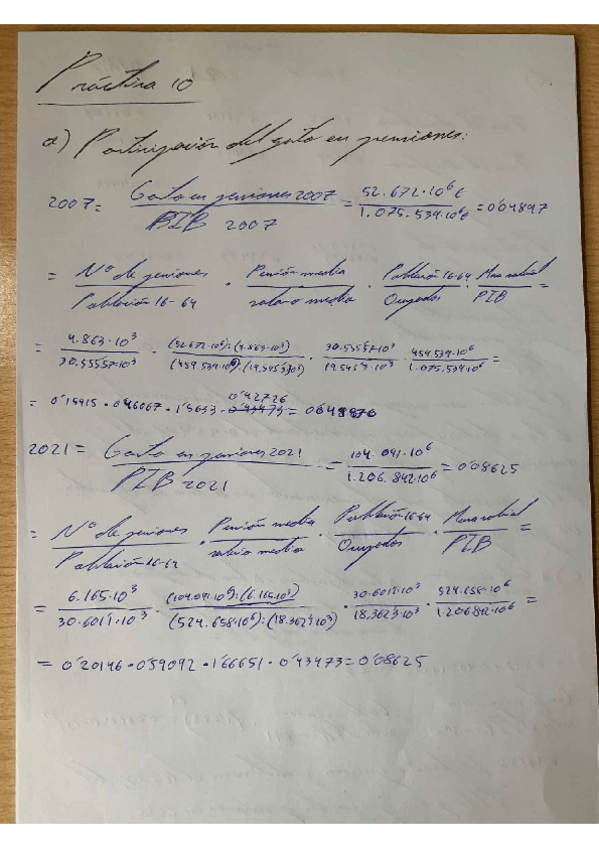 Práctica 10
a) Participación del gasto en pensiones:
2007 = Gasto en pensiones 2007 / PIB 2007 = 52.672·10⁶€ / 1.075.539·10⁶€ = 0'04897
= Nº de pensiones / Población 16-64 · Pensión media / salario medio · Población 16-64 / Ocupados · Masa salarial / PIB =
= 4.863·10³ / · (52.672·10⁶):(4.863·10³) / · / · / 1.075.539·10⁶ =
= 0'15915 · 0'46067 · · 0'42726 = 0'048970
2021 = Gasto en pensiones 2021 / PIB 2021 = 104.091·10⁶ / 1.206.842·10⁶ = 0'08625
= Nº de pensiones / Población 16-64 · Pensión media / salario medio · Población 16-64 / Ocupados · Masa salarial / PIB =
= 6.165·10³ / 30.6011·10³ · (104.091·10⁶):(6.165·10³) / (524.658·10⁶):(18.3623·10³) · 30.6011·10³ / 18.3623·10³ · 524.658·10⁶ / 1.206.842·10⁶ =
= 0'20146 · 0'59092 · 1'66651 · 0'43473 = 0'08625